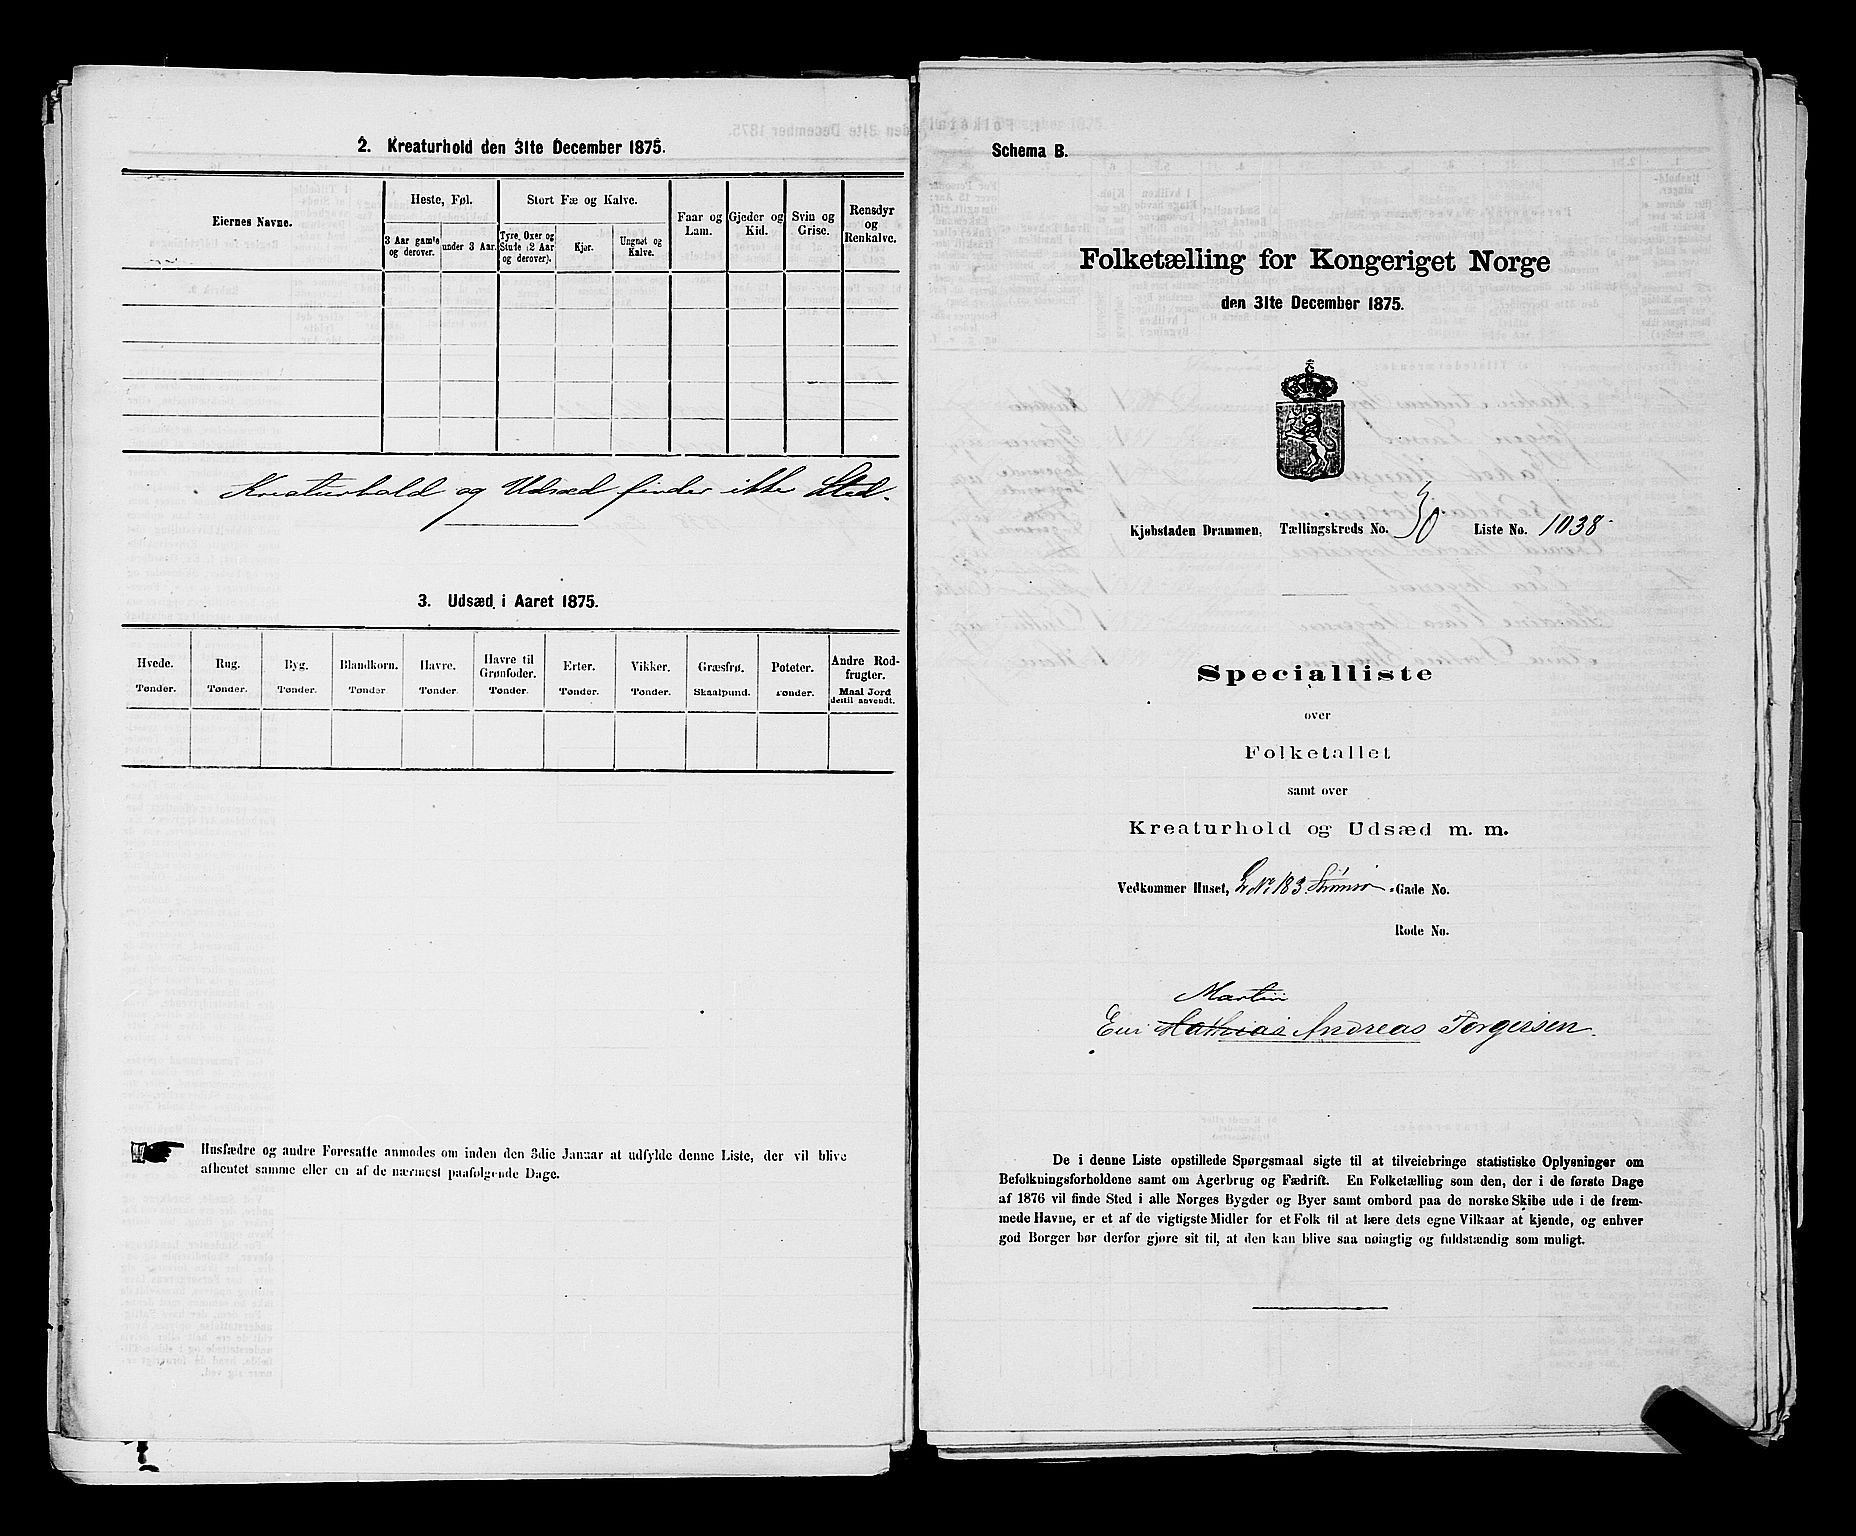 2. Kreaturhold den 31te December 1875.
Eiernes Navne.
Heste, Føl.
Stort Fæ og Kalve.
Faar og Lam.
Gjeder og Kid.
Svin og Grise.
Rensdyr og Renkalve.
3 Aar gamle og derover.
under 3 Aar.
Tyre, Oxer og Stude (2 Aar og derover).
Kjør.
Ungnøt og Kalve.
Kreaturhold og Udsæd finder ikke Sted.
3. Udsæd i Aaret 1875.
Hvede. Rug. Byg. Blandkorn. Havre. Havre til Grønfoder. Erter. Vikker. Græsfrø. Poteter. Andre Rodfrugter.
Tønder. Tønder. Tønder. Tønder Tønder. Tønder. Tønder. Tønder. Skaalpund. Tønder. Maal Jord dertil anvendt.
Husfædre og andre Foresatte anmodes om inden den 3die Januar at udfylde denne Liste, der vil blive
afhentet samme eller en af de nærmest paafølgende Dage.
Schema B.
Folketælling for Kongeriget Norge
den 31te December 1875.
Kjøbstaden Drammen, Tællingskreds No. 30 Liste No. 1038
Specialliste
over
Folketallet
samt over
Kreaturhold og Udsæd m. m.
Vedkommer Huset, No 183 Strømsø -Gade No.
Rode No.
Martin
Eier Mathias Andreas Torgersen.
De i denne Liste opstillede Spørgsmaal sigte til at tilveiebringe statistiske Oplysninger om
Befolkningsforholdene samt om Agerbrug og Fædrift. En Folketælling som den, der i de første Dage
af 1876 vil finde Sted i alle Norges Bygder og Byer samt ombord paa de norske Skibe ude i de frem-
mede Havne, er et af de vigtigste Midler for et Folk til at lære dets egne Vilkaar at kjende, og enhver
god Borger bør derfor gjøre sit til, at den kan blive saa nøiagtig og fuldstændig som muligt.